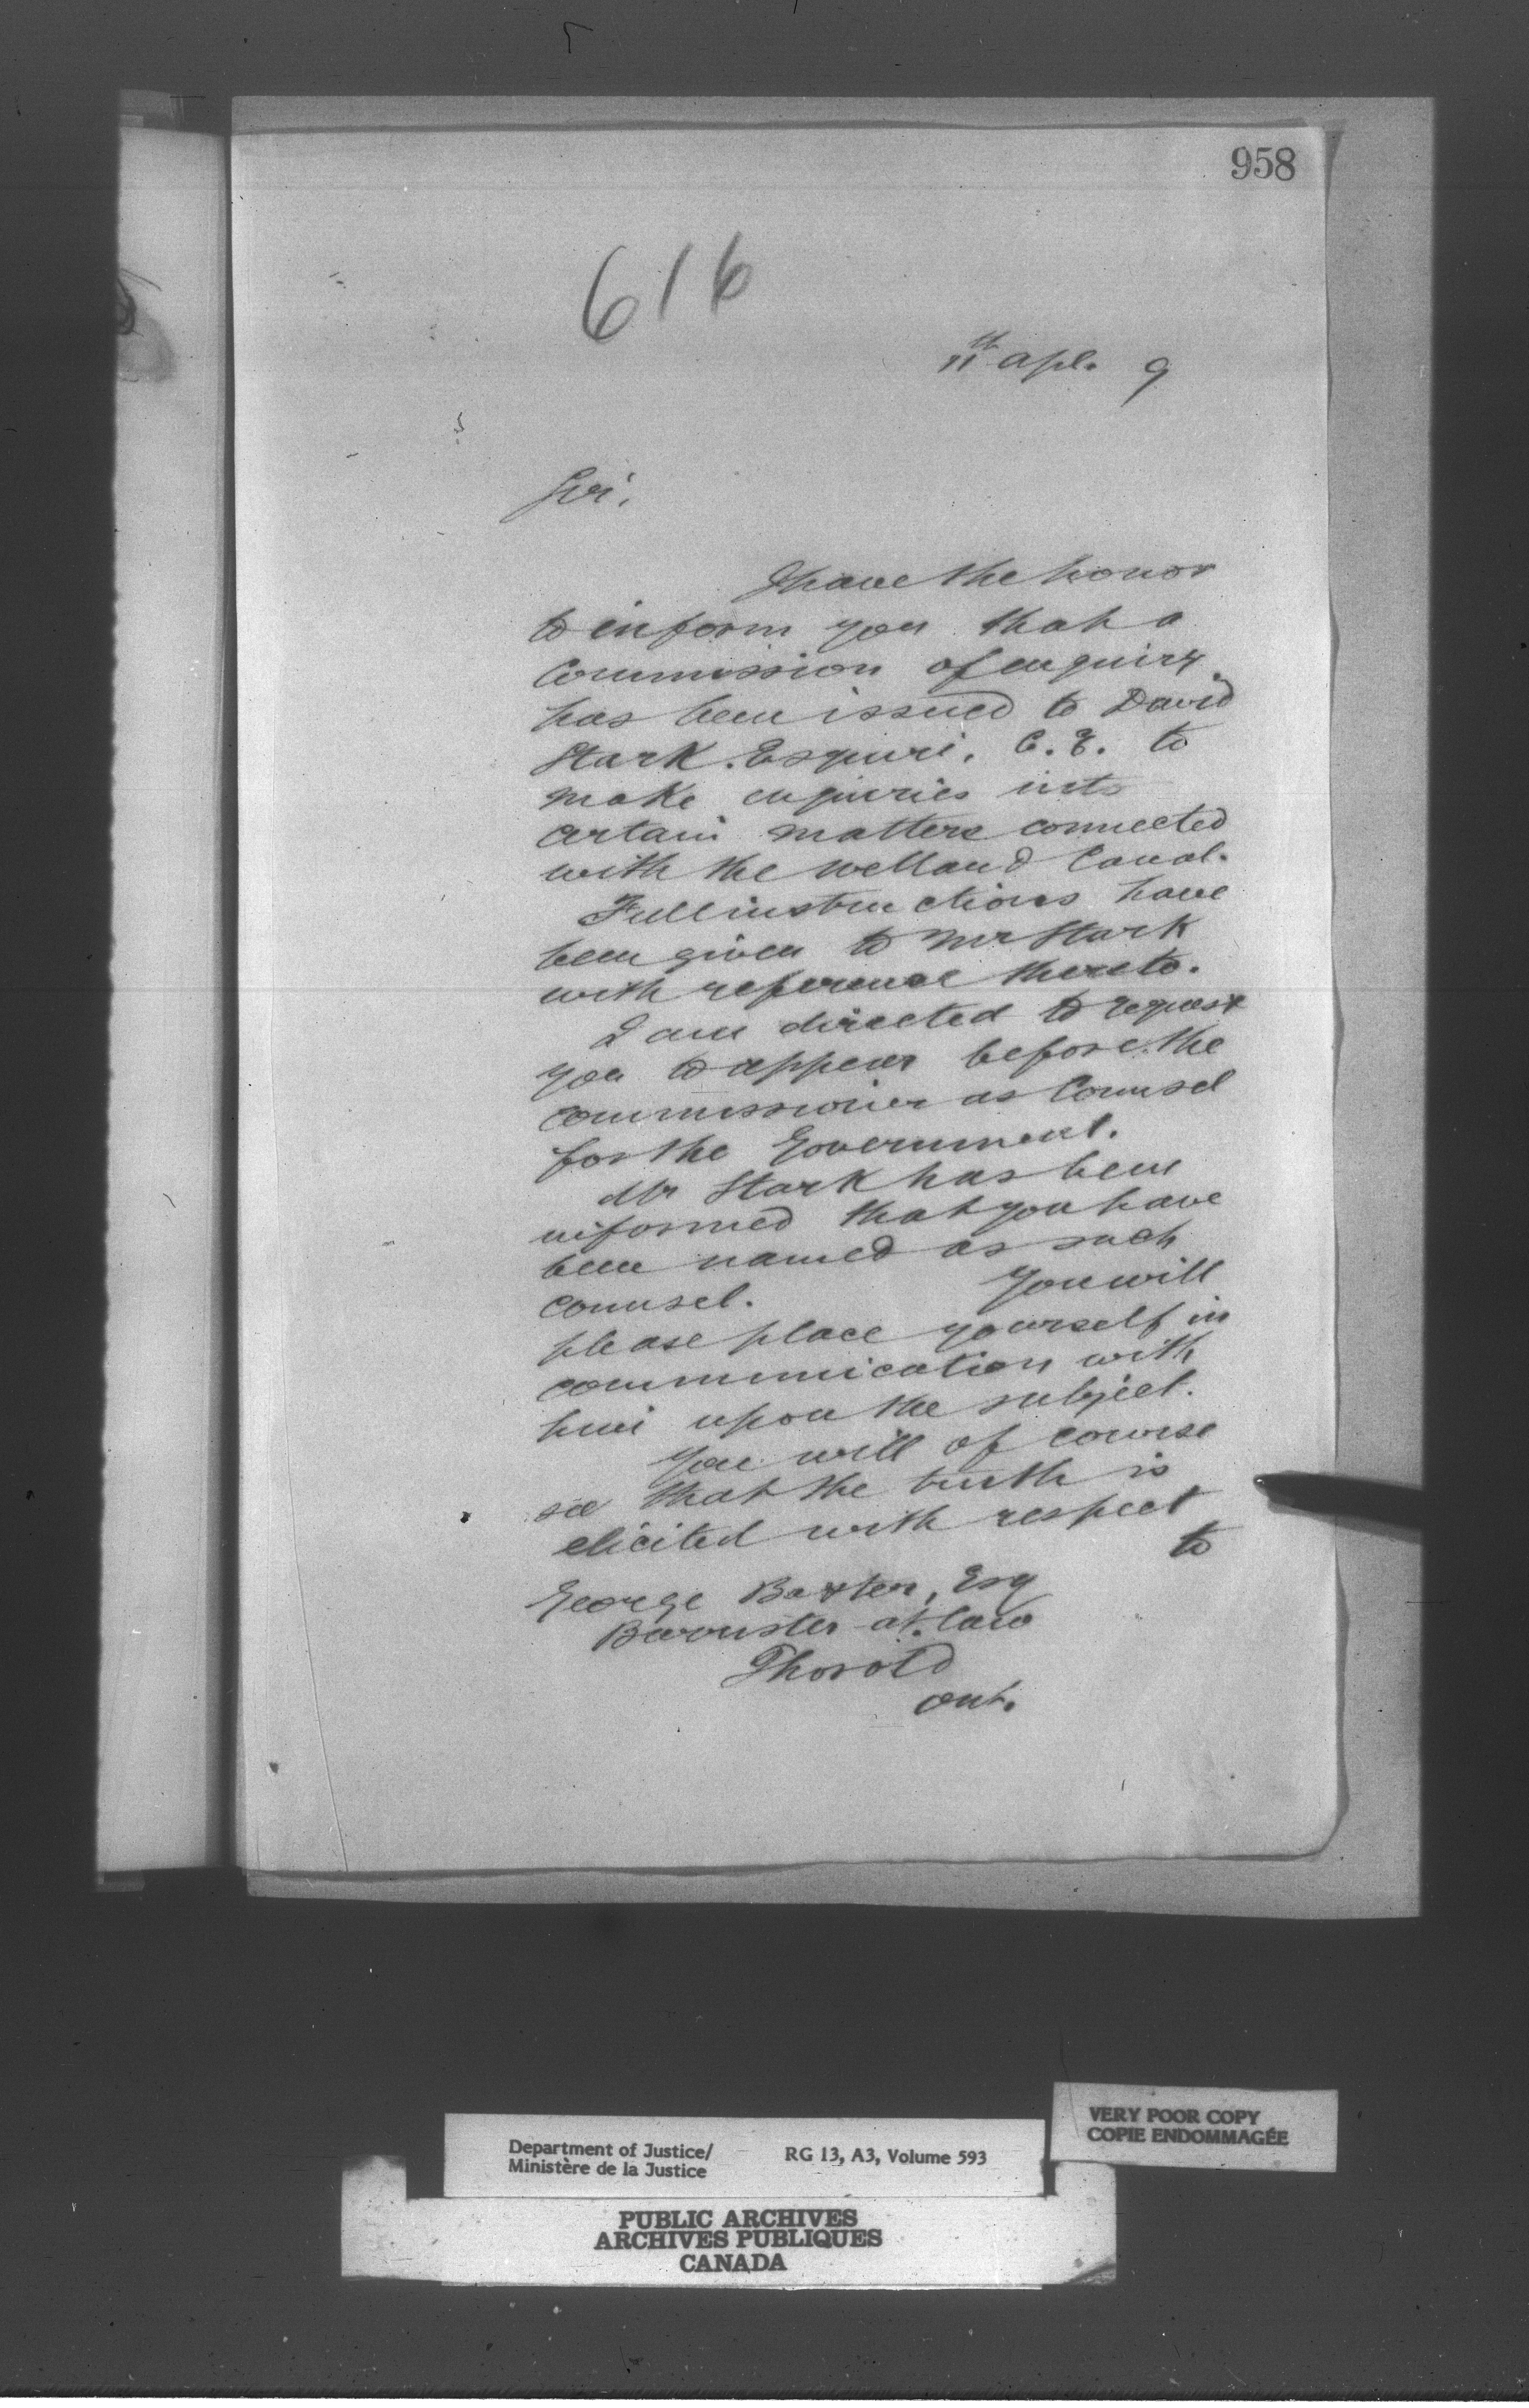 958
616
11th Apl. 9
Sir,
I have the honor
to inform you that a
Commission of enquiry
has been issued to David
Stark. Esquire. C.E. to
make enquiries into
certain matters connected
with the Welland Canal.
Full instructions have
been given to Mr Stark
with reference thereto.
I am directed to request
you to appear before the
Commissioner as Counsel
for the Government.
Mr Stark has been
informed that you have
been named as such
Counsel. You will
please place yourself in
communication with
him upon the subject.
You will of course
see that the truth is
elicited with respect
to
George Baxter, Esq
Barrister-at-law
Thorold
Ont.
VERY POOR COPY
COPIE ENDOMMAGÉE
Department of Justice/ RG 13, A3, Volume 593
Ministère de la Justice
PUBLIC ARCHIVES
ARCHIVES PUBLIQUES
CANADA